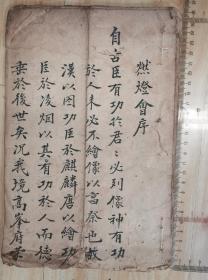 燃燈會序
自古臣有功於君〻必列像神有功
於人未必不繪像以富祭也故
漢以圖功臣於麒麟唐以繪功
臣於凌烟以其有功於人而德
垂於後世矣況我境高峯府